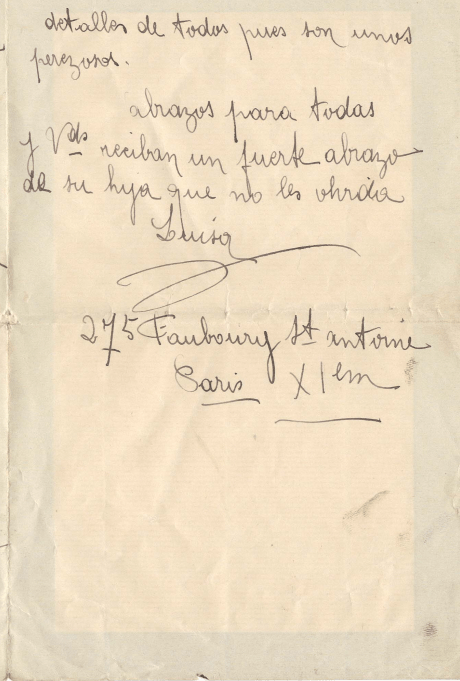 detalles de todos pues son unos
perezosos.
abrazos para todas
y Vds reciban un fuerte abrazo
de su hija que no les olvida
Luisa
275 Faubourg St antoine
Paris XIem